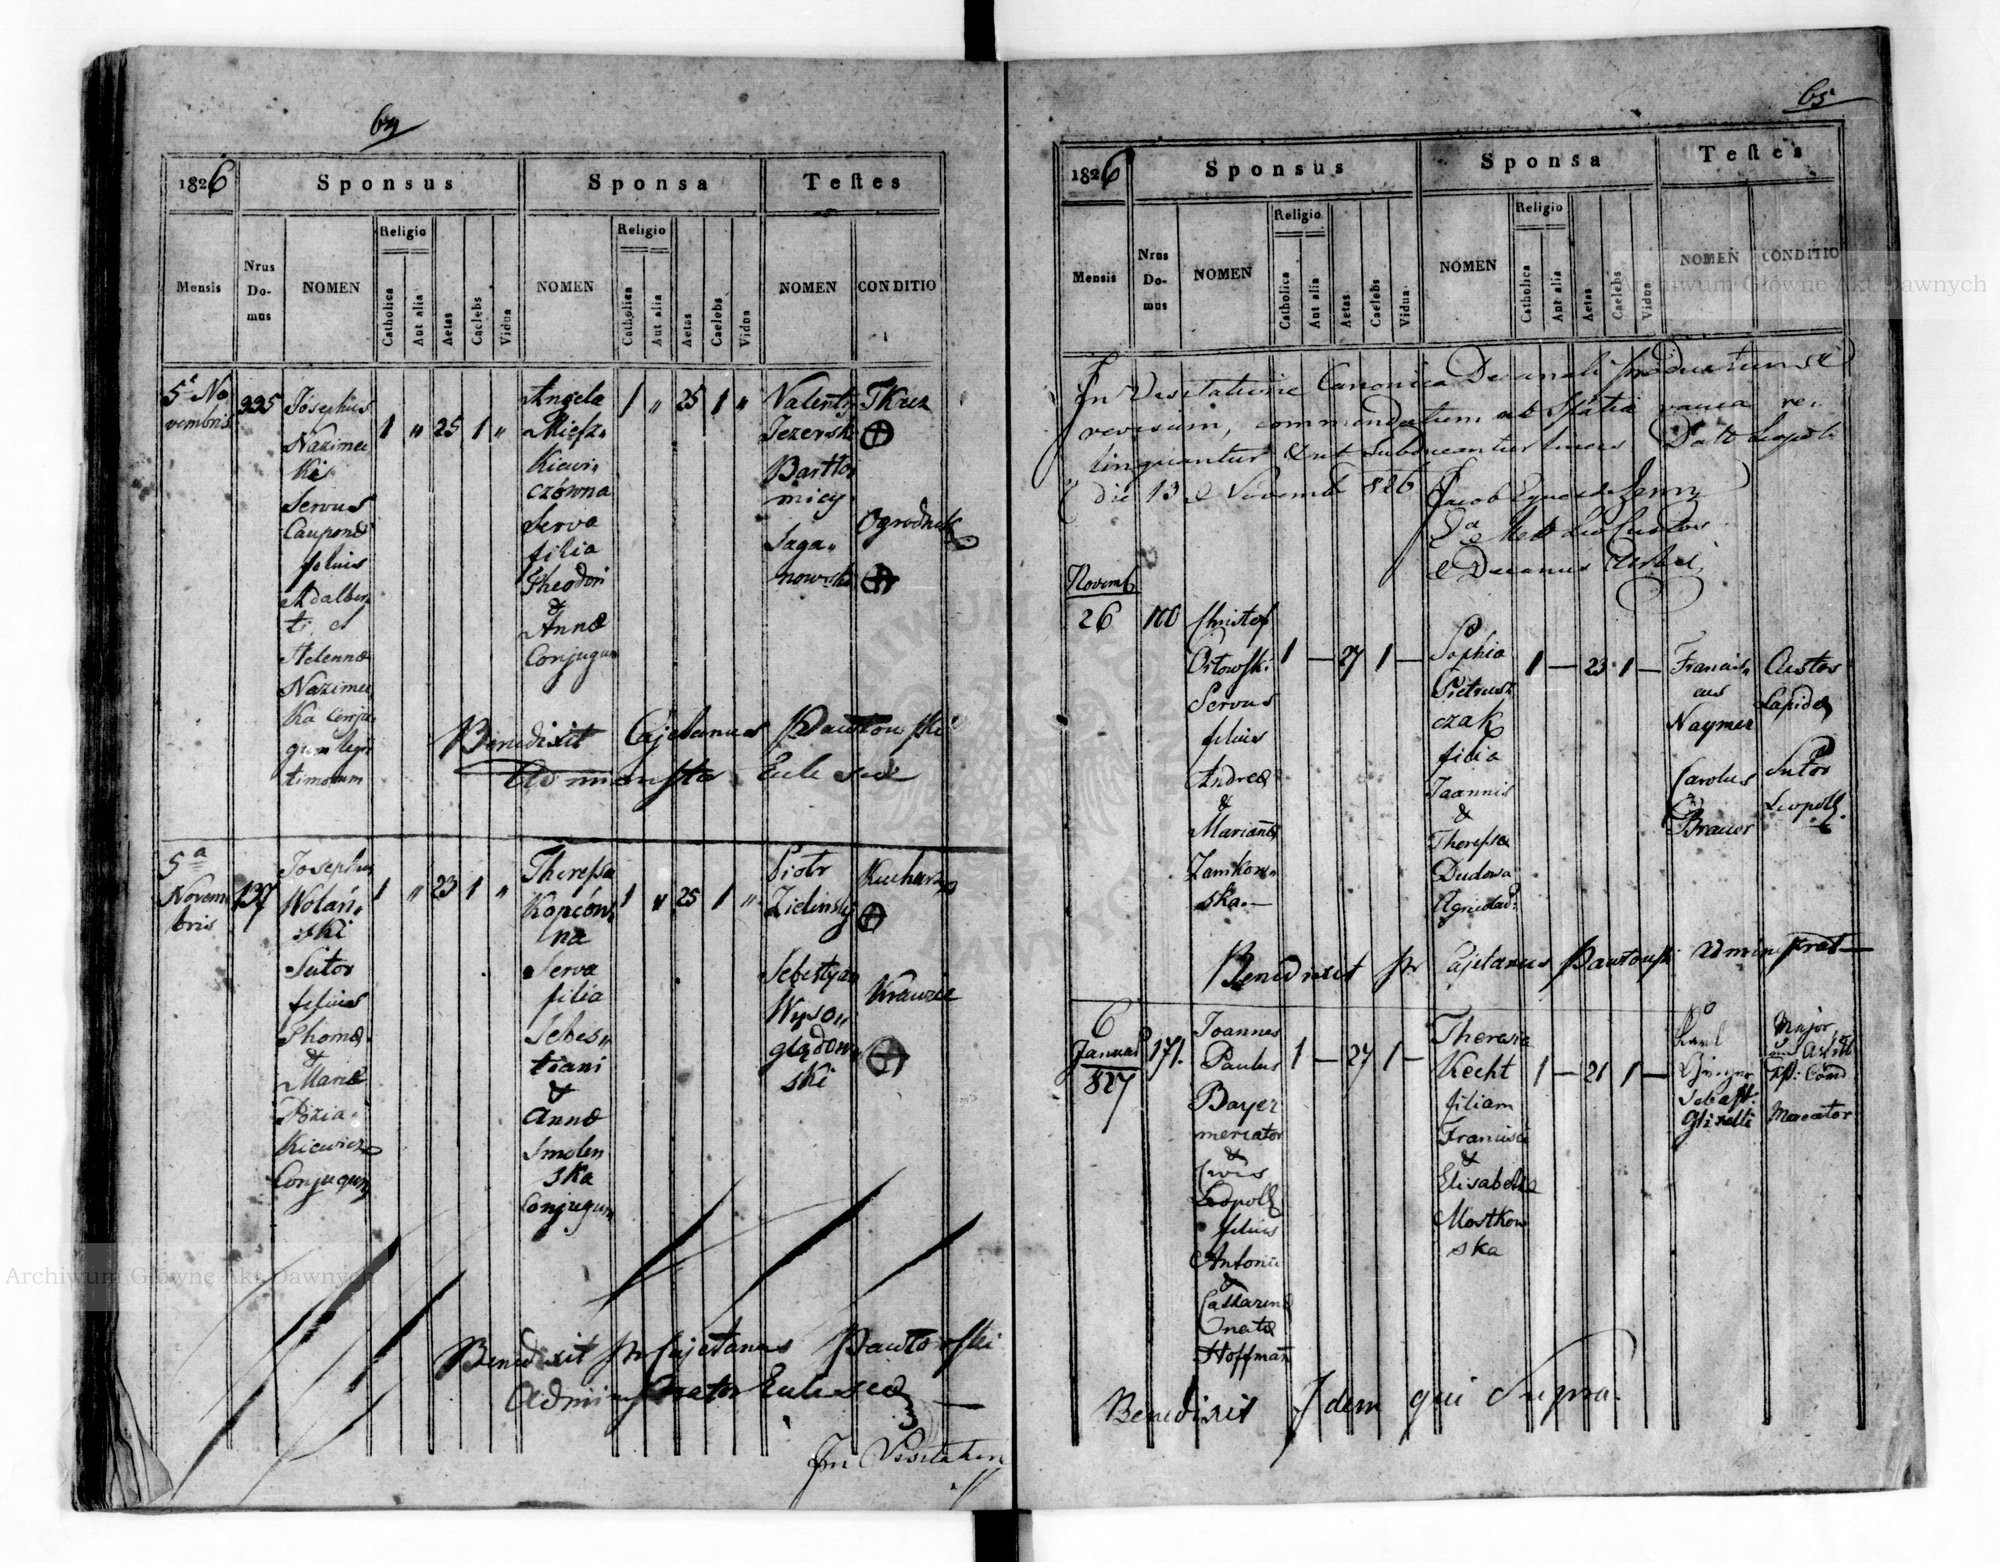 64
1826
Sponsus
Sponsa
Testes
Mensis
Nrus Domus
NOMEN
Religio
Catholica
Aut alia
Aetas
Caelebs
Vidua
NOMEN
Religio
Catholica
Aut alia
Aetas
Caelebs
Vidua
NOMEN
CONDITIO
5ª No
vembris
335
Josephus
Servus
Cauponæ
filius
Adalber
ti, et
Helennæ
Conju
gum legi
timorum
1 „ 25 1 „
Angela
Miesz
kiewi
czówna
Serva
filia
Theodori
&
Annæ
Conjugum
1 „ 25 1 „
Valenty
Jezerski
Bartło
miey
Saga„
nowski
Ogrodnik
Benedixit Cajetanus Pawłowski
Ecclesiæ
5ª
Novem
bris
137
Josephus
Wolań„
ski
Sutor
filius
Thomæ
&
Mariæ
Conjugum
1 „ 23 1 „
Theressa
Kopców
na
Serva
filia
Sebes„
tiani
&
Annæ
Smolen
ska
Conjugum
1 „ 25 1 „
Piotr
Zielinsky
Sebestyan
Wyso„
glądow„
ski
Kucharz
Krawiec
Benedixit pr Cajetanus Pawłowski
Administrator Ecclesiæ
In Visitation
65
1826
Sponsus
Sponsa
Testes
Mensis
Nrus Domus
NOMEN
Religio
Catholica
Aut alia
Aetas
Caelebs
Vidua
NOMEN
Religio
Catholica
Aut alia
Aetas
Caelebs
Vidua
NOMEN
CONDITIO
In Visitatione Canonica Decanali productum et
revisum, commendatum ut spatia vacua re„
linquantur & ut subducantur lineæ Datt Leopoli
die 13 Novemb 826
Novemb
26
100
Christof
Orłowski
Servus
filius
Andreæ
&
Mariannæ
Zamkow„
ska
1 — 27 1 —
Sophia
Pietrusz
czak
filia
Joannis
&
Theressæ
Dudowa
1 — 23 1 —
Francis„
cus
Naymer
Carolus
Brauer
Custos
Lapidæ
Sutor
Leopoli
Benedixit pr Cajetanus Pawłowski Administrat
6
Januar
827
171.
Joannes
Paulus
Bayer
mercator
&
Civis
Leopoli
filius
Antonii
&
Catharinæ
Onatæ
Hoffman
1 — 27 1 —
Theresia
Hecht
filiam
Francisci
&
Elisabethæ
Mostkow
ska
1 — 21 1 —
Karl
Sebast.
Major
Mercator
Benedixit Idem qui Supra.
Archiwum Główne Akt Dawnych
Archiwum Główne Akt Dawnych